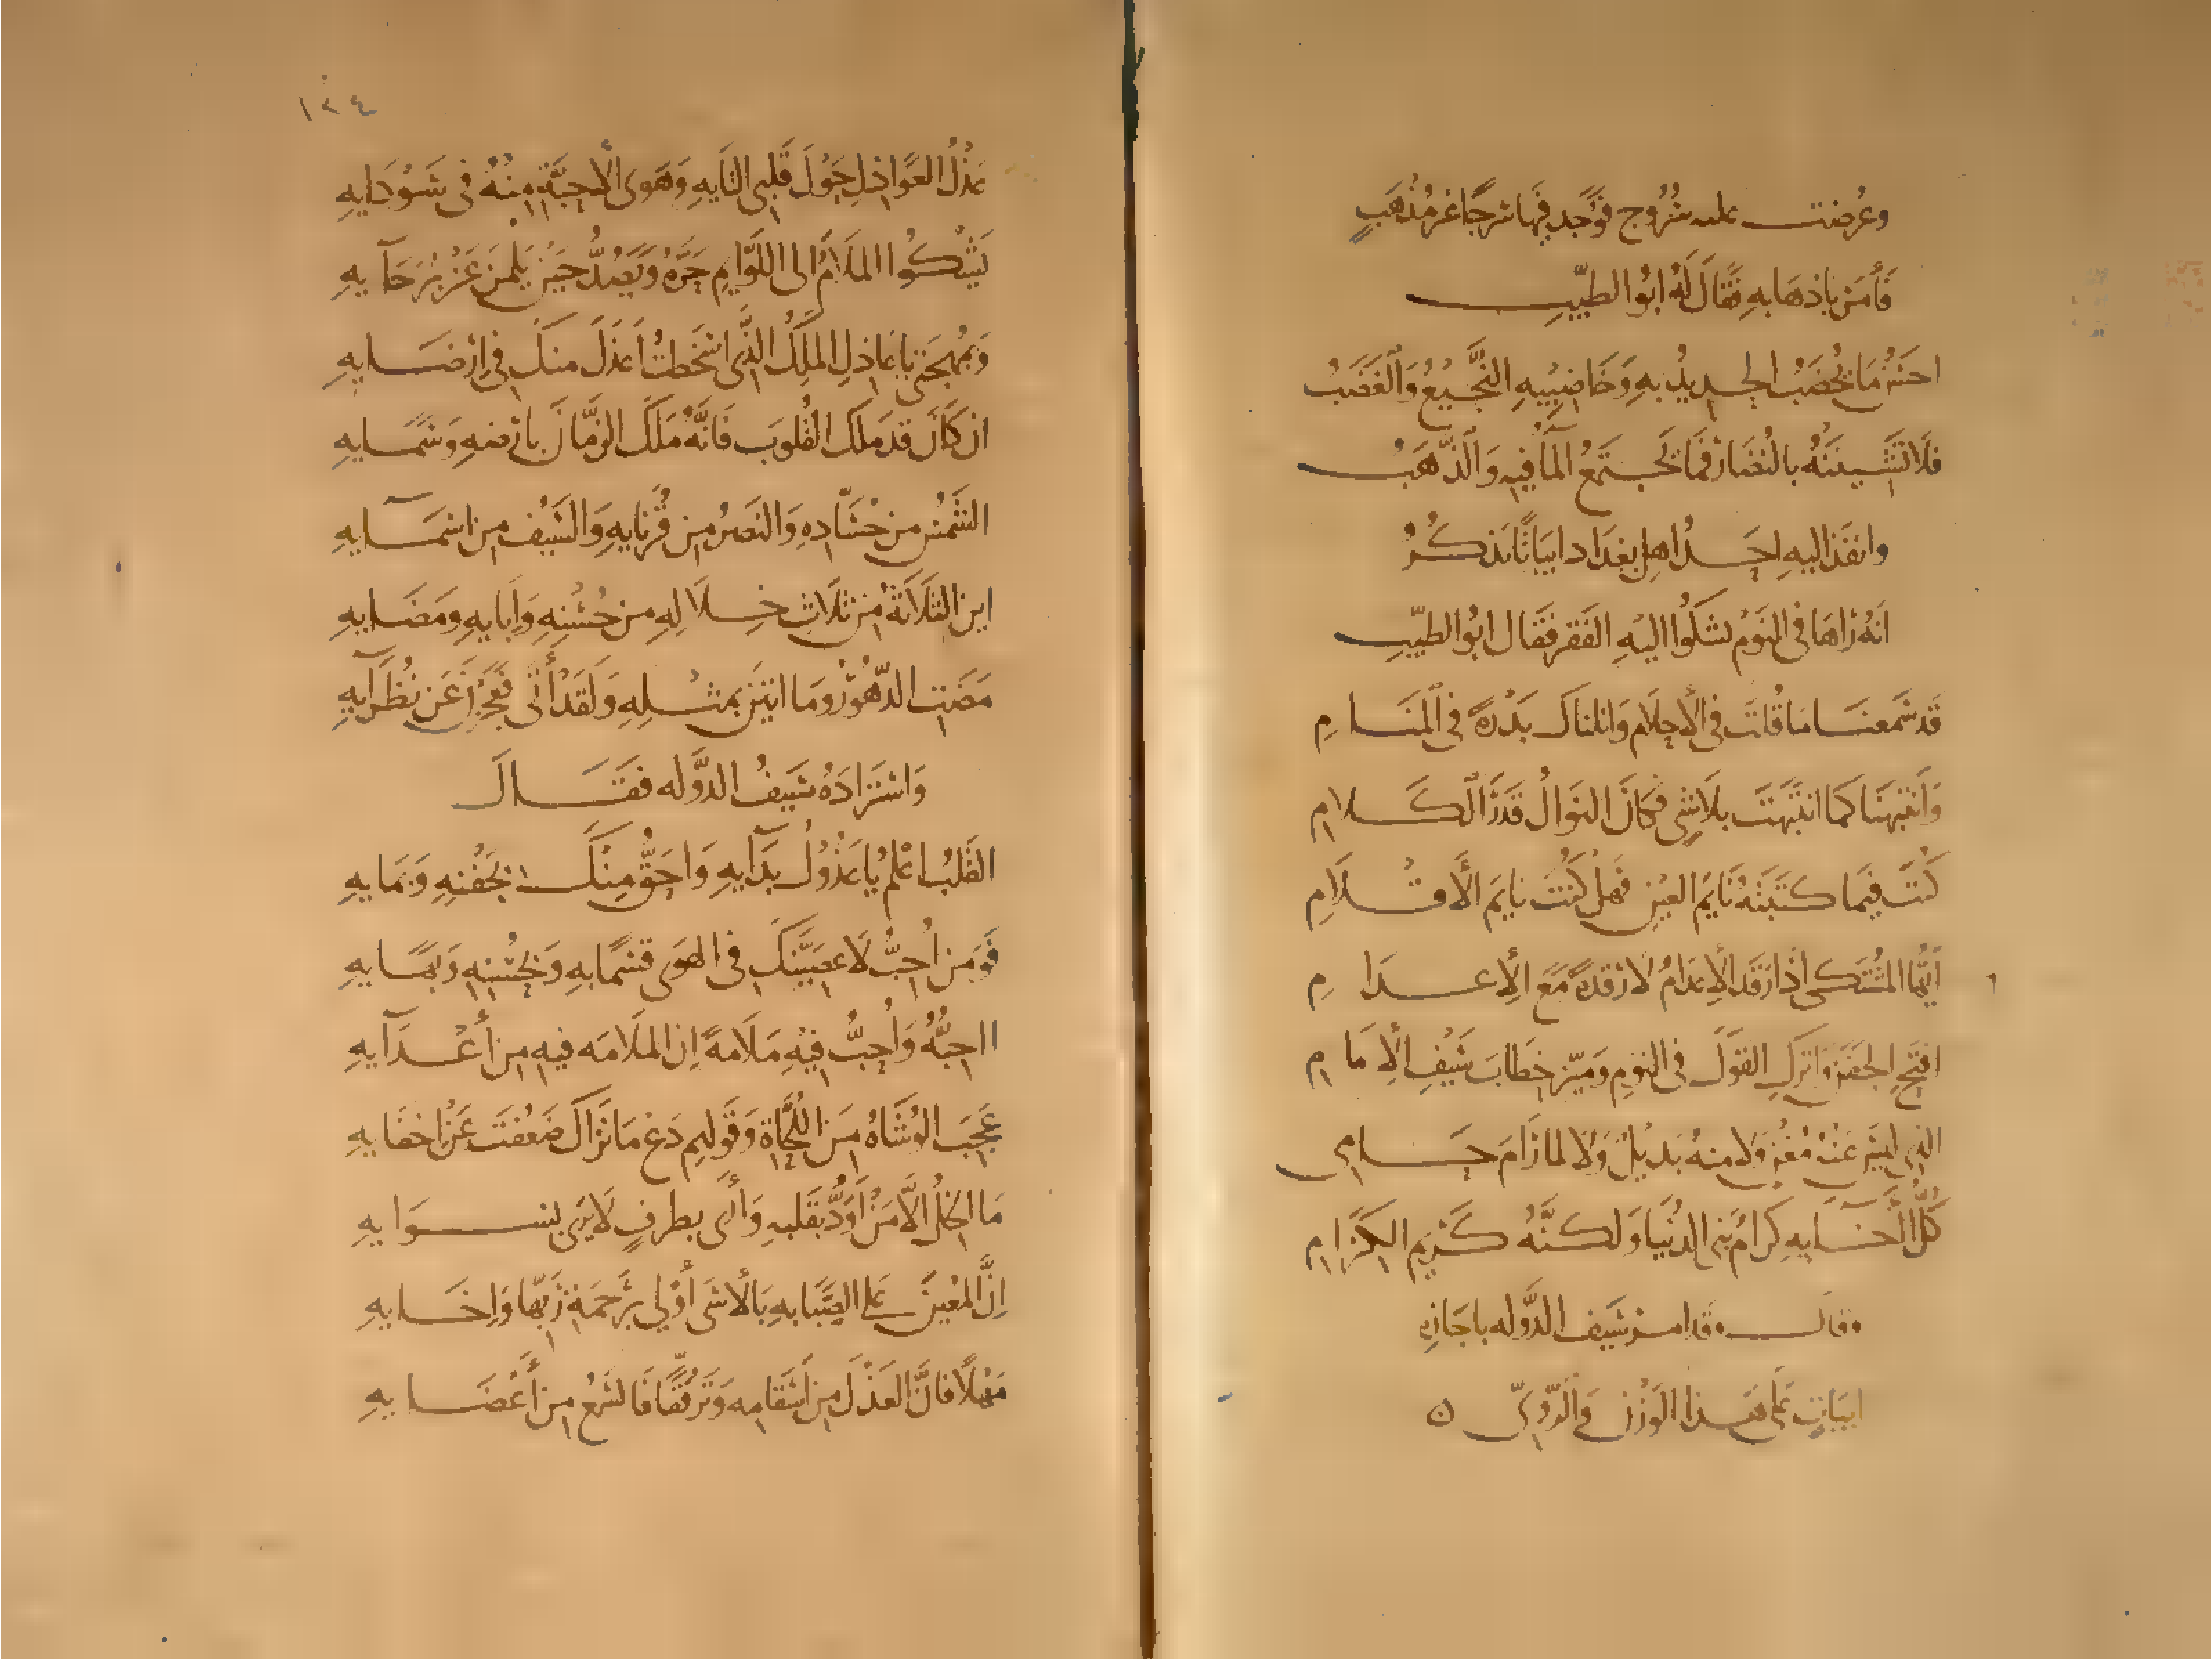 وعُرضت عليه سُرُوج فوَجد فيها سَرجًا غير مُذهَبٍ
فَأمَر باذهَابهِ فقَالَ لَهُ ابُو الطيّبِ
احسَنُ مَا يُخضَبُ الحديدُ بهِ وَخَاضِبِيهِ النَّجيعُ وَالغَضَبُ
فلَا تَشِينَنهُ بالنُضَار فمَا يَجتمَعُ المَآ فيهِ وَالذَّهَبُ
وانفَذ اليهِ احَدُ اهل بغدَاد ابيَاتًا يَذكُرُ
انَهُ رَاهَا فى النَومْ يشكُوا اليهِ الفَقر فقَال ابُو الطيّبِ
قَد سَمعنَا مَا قُلتَ فى الأحلَام وَانلنَاكَ بَدْرَةً فى المنَامِ
وَانتَبهنَا كمَا انتبَهتَ بلَا شىٍ فكانَ النوَالُ قَدرَ الكَلامِ
كُنتَ فيمَا كتَبتَهُ نَايمَ العَيْنِ فهَل كُنتَ نايمَ الأَقلَامِ
ايُّها المُشتكى اذَا رَقدَ الإِعدَامُ لا رَقدةً مَعَ الإِعدَامِ
افتَحِ الجَفنَ وَاترُكِ القَولَ فى النَومِ وَميّز خطَابَ سَيْفِ الأَنَامِ
الذى ليسَ عَنْهُ مُغْنٍ وَلا منهُ بَديلٌ وَلا لمَا رَامَ حَامى
كُلُّ آخَايهِ كرَامُ بَنى الدُنْيَا وَلكنَّهُ كَرِيمُ الكِرَامِ
وقالــ وقد امر سَيف الدَّوله باجَازه
ابيَاتٍ عَلى هَذا الوَزْنِ وَالرَّوىّ ن
١٢٤
عَذْلُ العَوَاذلِ حَوْلَ قَلبى التَايهِ وَهَوى الأَحِبَّةِ مِنْهُ فى سَوْدَايهِ
يَشْكُوا المَلَامُ الى اللَوَّايمِ حَرَّهُ وَيَصُدُّ حينَ يَلُمنَ عَنْ بُرَحَآيهِ
وَبمُهجَتى يَا عَاذِلِ المَلِكُ الذَّى اسْخَطتُ اعذَلَ منكَ فى ارْضَايهِ
ان كَانَ قد مَلكَ القُلوبَ فَانَّهُ مَلَكَ الزمَانَ بأرضهِ وَسَمَايهِ
الشَمْسُ من حُسَّادهِ وَالنَصْرُ من قُرنَايهِ وَالسَيْف من اسمَآيهِ
اين الثَلَاثَةُ من ثلَاثِ خِلَالهِ من حُسْنِهِ وَإبَايهِ وَمَضَايهِ
مَضَتِ الدّهُورُ وَمَا اتَينَ بمثلِهِ وَلَقَدْ أَتَى فَعَجَزنَ عَن نُظَرَآيهِ
وَاسْتَزَادَهُ سَيفُ الدَّوله فقَالَ
القَلبُ اعْلَمُ يَا عَذُولُ بدَآيهِ وَاحَقُّ مِنْكَ بجَفْنِهِ وَبمَايهِ
فَوَمن اُحِبُّ لَاعصِيَنَّكَ فى الهَوى قَسَمًا بهِ وَبحُسْنهِ وَبهَايهِ
ااحِبُّهُ وَاُحِبُّ فيْهِ مَلَامَةً إن المَلَامَه فيهِ من أَعْدَآيهِ
عَجبَ الوُشَاةُ مِنَ اللُّحَاةِ وَقَولِهم دَعْ مَا نَرَاكَ ضَعُفتَ عَنْ اخفَايهِ
مَا الخِلُّ الَّا مَنْ اَوَدُّ بقَلبهِ وَأَرَى بطَرفٍ لَا يَرَى بسِوَايهِ
انَّ المُعينَ عَلى الصَّبَابهِ بالأَسَى أوْلى برَحَمةِ رَبّها وَاِخَايهِ
مَهْلًا فانَّ العَذْلَ من اَسْقَامِهِ وَترَفُقًا فَالسَمْعُ من أَعْضَايهِ